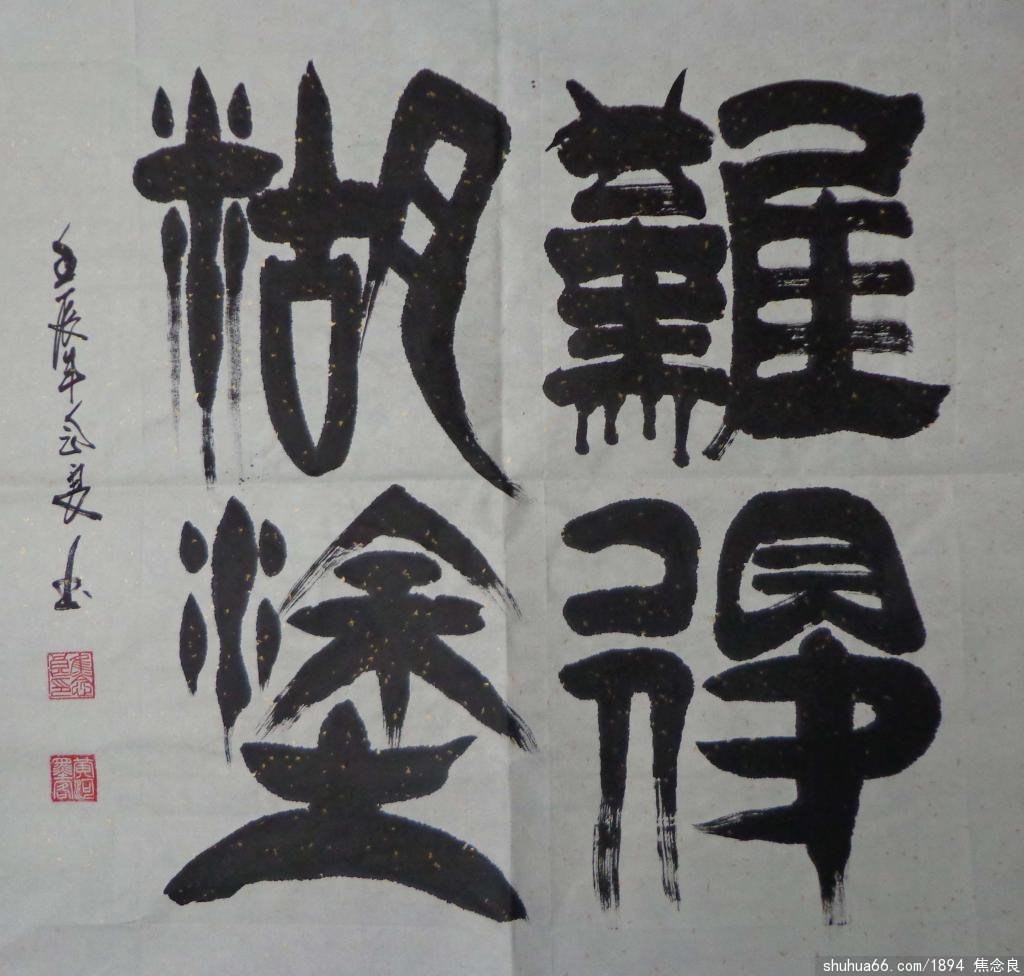 難得
糊塗
壬辰年念良书
shuhua66.com/1894 焦念良